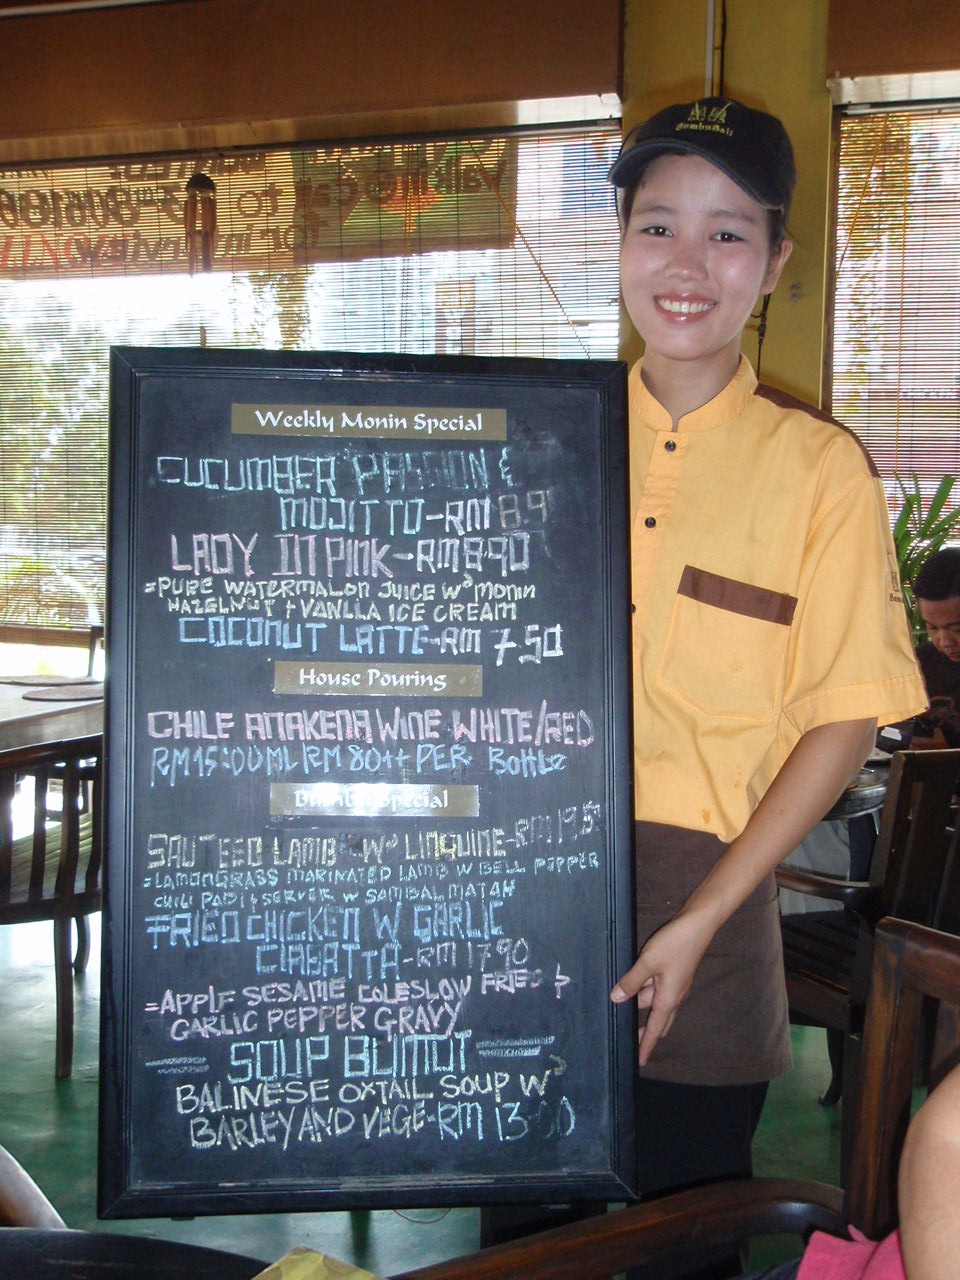 BumbuBali
Weekly Monin Special
CUCUMBER PASSION &
MOJITTO-RM 8.9
LADY IN PINK-RM8.90
=PURE WATERMALON JUICE W MONIN
HAZELNUT + VANLLA ICE CREAM
COCONUT LATTE-RM 7.50
House Pouring
CHILE ANAKENA WINE WHITE/RED
RM15:00ML RM 80++ PER Bottle
Bumbu Special
SAUTEED LAMB W LINGUINE-RM 19.5
=LAMONGRASS MARINATED LAMB W BELL PEPPER
CHILI PADI & SERVER W SAMBAL MATAH
FRIED CHICKEN W GARLIC
CIABATTA-RM 17.90
=APPLE SESAME COLESLOW FRIES &
GARLIC PEPPER GRAVY
SOUP BUNTUT
BALINESE OXTAIL SOUP W
BARLEY AND VEGE-RM 13.50